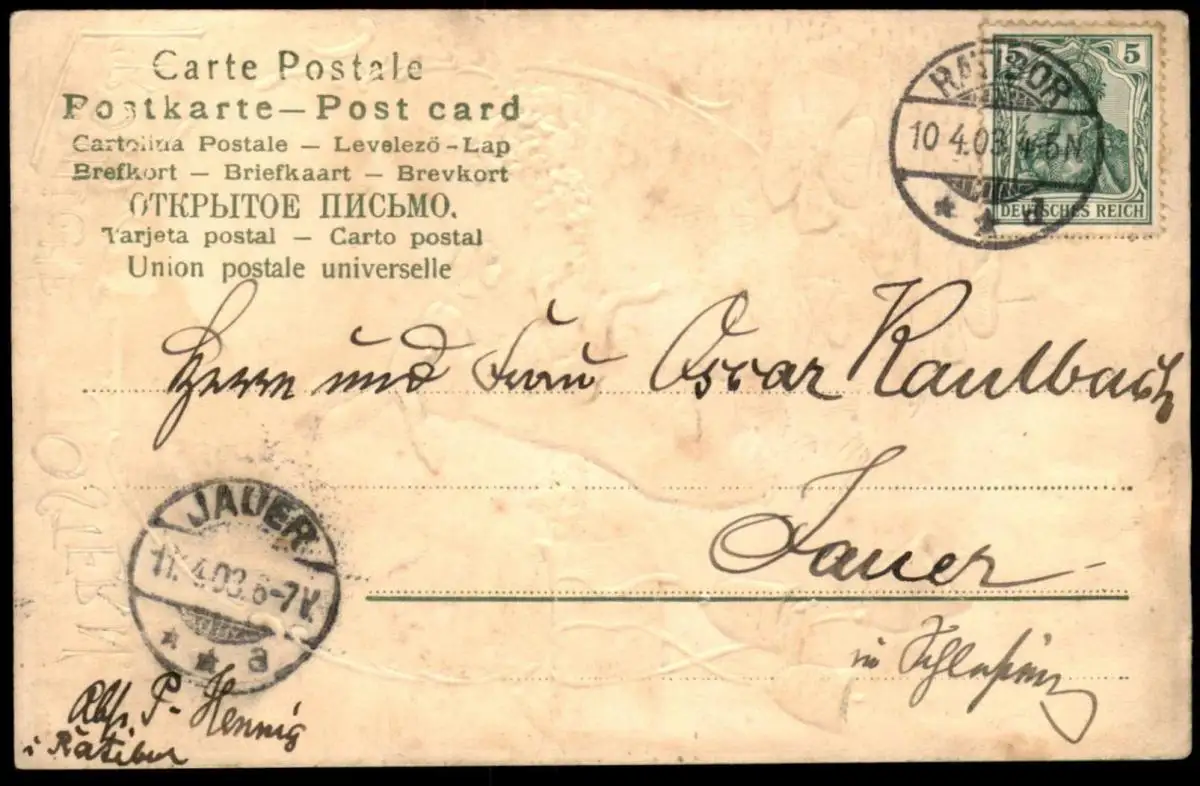 Carte Postale
Postkarte — Post card
Cartolina Postale — Levelező-Lap
Brefkort — Briefkaart — Brevkort
ОТКРЫТОЕ ПИСЬМО.
Tarjeta postal — Carto postal
Union postale universelle
5
DEUTSCHES REICH
RATIBOR
10 4.03. 4-5N
* * a
Herrn und Frau Oscar Kaulbach
Jauer
in Schlesien
JAUER
11. 4.03. 6-7V.
* * a
Abs. P. Hennig
i Ratibor
OSTERN